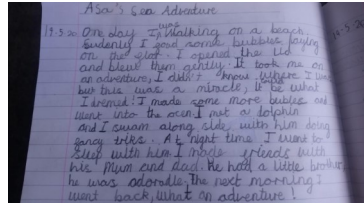 Asa's Sea Adventure
19.5.20 One day I was walking on a beach.
Sudenly I good some bubbles laying
on the flor. I opened the lid
and blew them gently. It took me on
an adventure, I didn't know where I was
but this was a miracle, It be what
I dremed. I made some more bubles and
went into the ocen. I met a dolphin
and I swam along side with him doing
fancy triks. At night time I went to
sleep with him I made friends with
his Mum and dad. He had a little brother,
he was adorable. the next morning I
went back, What an adventure!